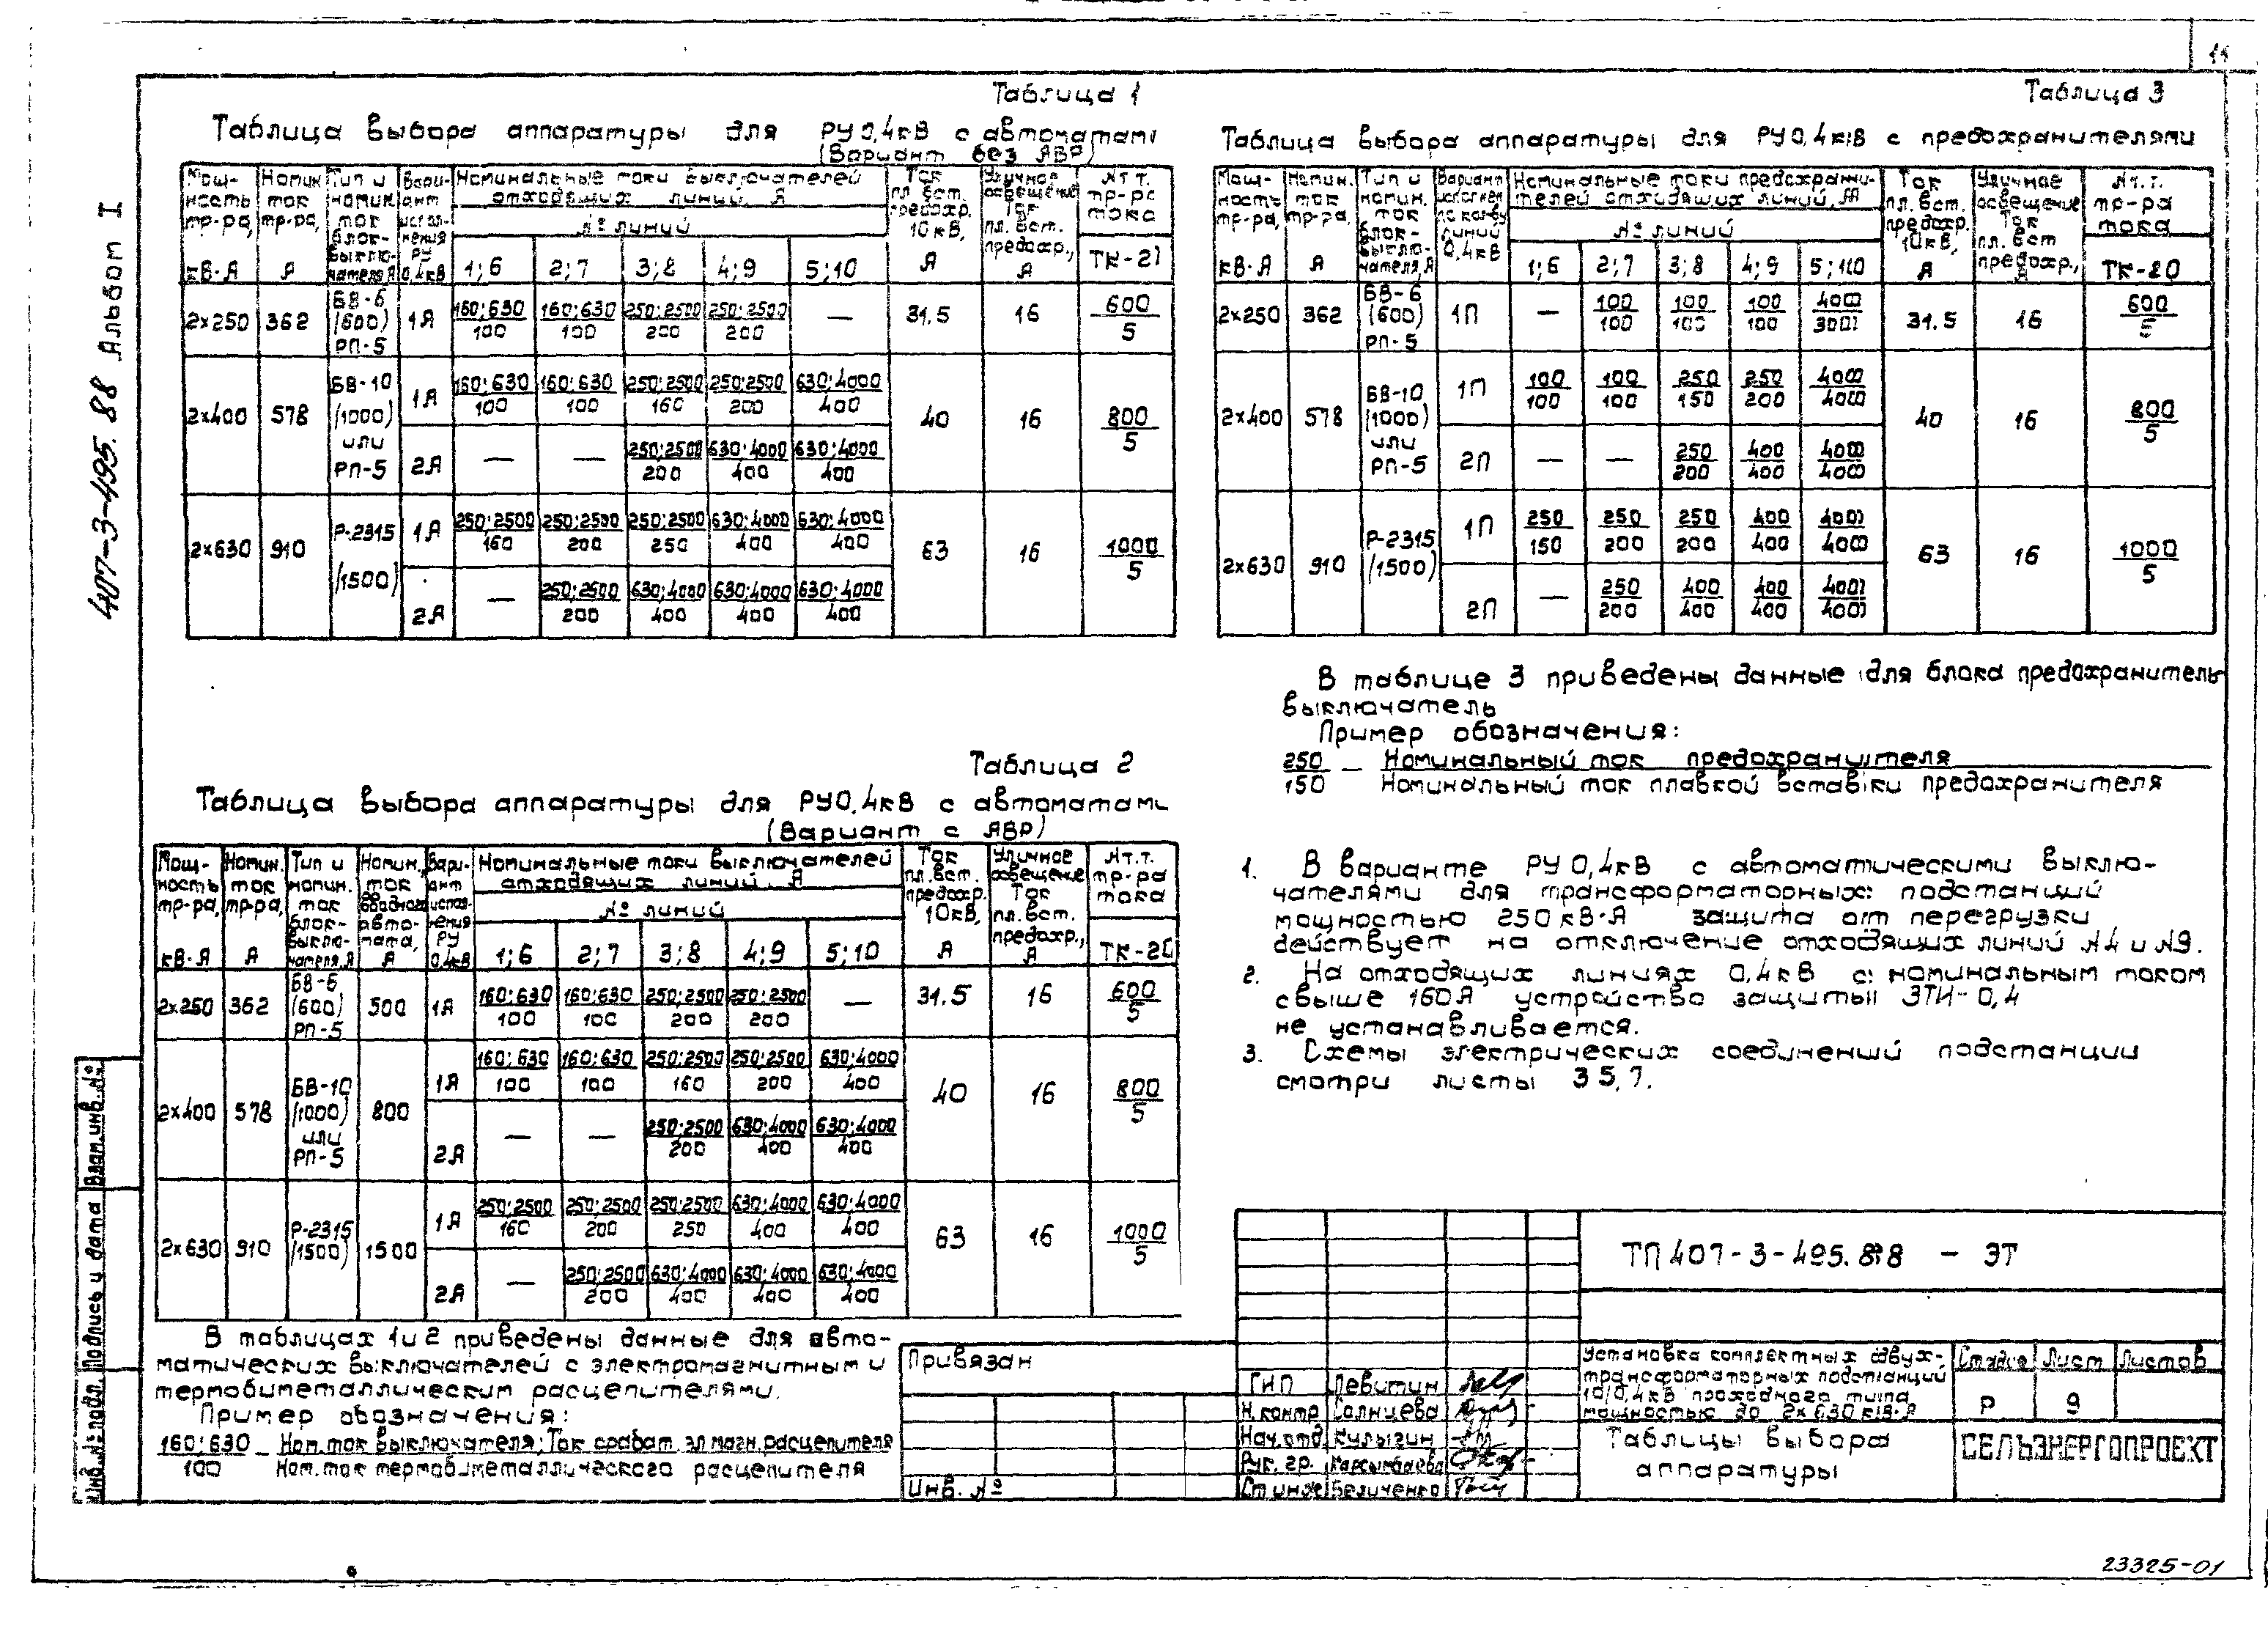 407-3-495.88 Альбом I
Таблица 1
Таблица выбора аппаратуры для РУ 0,4кВ с автоматами
(Вариант без АВР)
Мощ- Номин. Тип и Вари- Номинальные токи выключателей Ток Уличное Кт.т.
ность ток номин. ант отходящих линий, А пл. вст. освещение тр-ра
тр-ра, тр-ра, ток испол- № линий предохр. Ток тока
блок- нения 10кВ, пл. вст.
выклю- РУ предохр.,
кВ·А А чателя, А 0,4кВ 1;6 2;7 3;8 4;9 5;10 А А ТК-20
2×250 362 БВ-6 (600) РП-5 1А 160;630/100 160;630/100 250;2500/200 250;2500/200 — 31.5 16 600/5
2×400 578 БВ-10 (1000) или РП-5 1А 160;630/100 160;630/100 250;2500/160 250;2500/200 630;4000/400 40 16 800/5
2А — — 250;2500/200 630;4000/400 630;4000/400
2×630 910 Р-2315 (1500) 1А 250;2500/160 250;2500/200 250;2500/250 630;4000/400 630;4000/400 63 16 1000/5
2А — 250;2500/200 630;4000/400 630;4000/400 630;4000/400
Таблица 2
Таблица выбора аппаратуры для РУ0,4кВ с автоматами
(Вариант с АВР)
Мощ- Номин. Тип и Номин. Вари- Номинальные токи выключателей Ток Уличное Кт.т.
ность ток номин. ток ант отходящих линий, А пл. вст. освещение тр-ра
тр-ра, тр-ра, ток вводного испол- № линий предохр. Ток тока
блок- авто- нения 10кВ, пл. вст.
выклю- мата, РУ предохр.,
кВ·А А чателя, А А 0,4кВ 1;6 2;7 3;8 4;9 5;10 А А ТК-20
2×250 362 БВ-6 (600) РП-5 500 1А 160;630/100 160;630/100 250;2500/200 250;2500/200 — 31.5 16 600/5
2×400 578 БВ-10 (1000) или РП-5 800 1А 160;630/100 160;630/100 250;2500/160 250;2500/200 630;4000/400 40 16 800/5
2А — — 250;2500/200 630;4000/400 630;4000/400
2×630 910 Р-2315 (1500) 1500 1А 250;2500/160 250;2500/200 250;2500/250 630;4000/400 630;4000/400 63 16 1000/5
2А — 250;2500/200 630;4000/400 630;4000/400 630;4000/400
В таблицах 1 и 2 приведены данные для авто-
матических выключателей с электромагнитным и
термобиметаллическим расцепителями.
Пример обозначения:
160;630 — Ном. ток выключателя; Ток срабат. эл магн. расцепителя
100 Ном. ток термобиметаллического расцепителя
Таблица 3
Таблица выбора аппаратуры для РУ0,4кВ с предохранителями
Мощ- Номин. Тип и Вариант Номинальные токи предохрани- Ток Уличное Кт.т.
ность ток номин. исполнен. телей отходящих линий, А пл. вст. освещение тр-ра
тр-ра, тр-ра, ток по кол-ву № линий предохр. Ток тока
блок- линий 10кВ, пл. вст
выклю- 0,4кВ предохр.,
кВ·А А чателя, А 1;6 2;7 3;8 4;9 5;10 А А ТК-20
2×250 362 БВ-6 (600) РП-5 1П — 100/100 100/100 100/100 400/300 31.5 16 600/5
2×400 578 БВ-10 (1000) или РП-5 1П 100/100 100/100 250/150 250/200 400/400 40 16 800/5
2П — — 250/200 400/400 400/400
2×630 910 Р-2315 (1500) 1П 250/150 250/200 250/200 400/400 400/400 63 16 1000/5
2П — 250/200 400/400 400/400 400/400
В таблице 3 приведены данные для блока предохранитель
выключатель
Пример обозначения:
250 — Номинальный ток предохранителя
150 Номинальный ток плавкой вставки предохранителя
1. В варианте РУ 0,4кВ с автоматическими выклю-
чателями для трансформаторных подстанций
мощностью 250кВ·А защита от перегрузки
действует на отключение отходящих линий №4 и №9.
2. На отходящих линиях 0,4кВ с номинальным током
свыше 160А устройство защиты ЗТИ-0,4
не устанавливается.
3. Схемы электрических соединений подстанции
смотри листы 3 5, 7.
Привязан
Инв. №
ТП 407-3-495.88 - ЭТ
ГИП Левитин
Н.контр Солнцева
Нач.отд. Кулыгин
Рук. гр. Карсымбаева
Ст инж Беличенко
Установка комплектных двух-
трансформаторных подстанций
10/0,4кВ проходного типа
мощностью до 2×630 кВ·А
Стадия Лист Листов
Р 9
Таблицы выбора
аппаратуры
СЕЛЬЭНЕРГОПРОЕКТ
Взам.инв.№
Подпись и дата
Инв.№подл.
23325-01